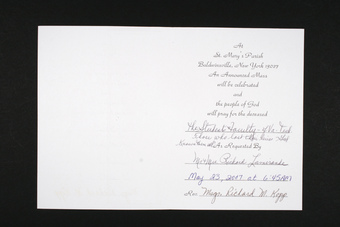 At
St. Mary's Parish
Baldwinsville, New York 13027
An Announced Mass
will be celebrated
and
the people of God
will pray for the deceased
The Student Faculty
those who lost
As Requested By
Mr. Mrs. Richard
May 23, 2007 at 6:45 AM
Rev. Msgr. Richard M. Kopp